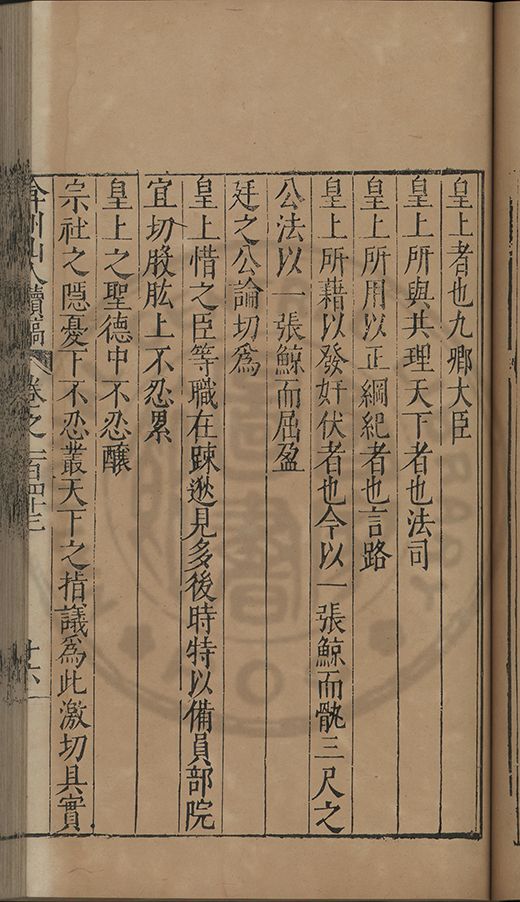 皇上者也九卿大臣
皇上所與共理天下者也法司
皇上所用以正綱紀者也言路
皇上所藉以發奸伏者也今以一張鯨而骩三尺之
公法以一張鯨而屈盈
廷之公論切爲
皇上惜之臣等職在踈逖見多後時特以備員部院
宜切股肱上不忍累
皇上之聖德中不忍釀
宗社之隱憂下不忍叢天下之指議爲此激切具實
弇州山人續稿 卷之一百四十三
十六